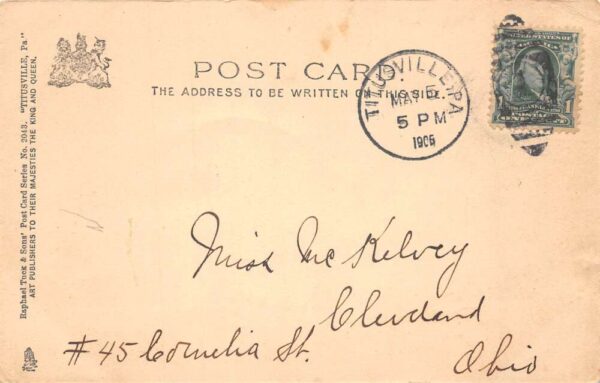 POST CARD.
THE ADDRESS TO BE WRITTEN ON THIS SIDE.
TITUSVILLE, PA.
MAY 5
5 PM
1905
1
Raphael Tuck & Sons' Post Card Series No. 2043. "TITUSVILLE, Pa."
ART PUBLISHERS TO THEIR MAJESTIES THE KING AND QUEEN.
Miss McKelvey
Cleveland
#45 Cornelia St.
Ohio